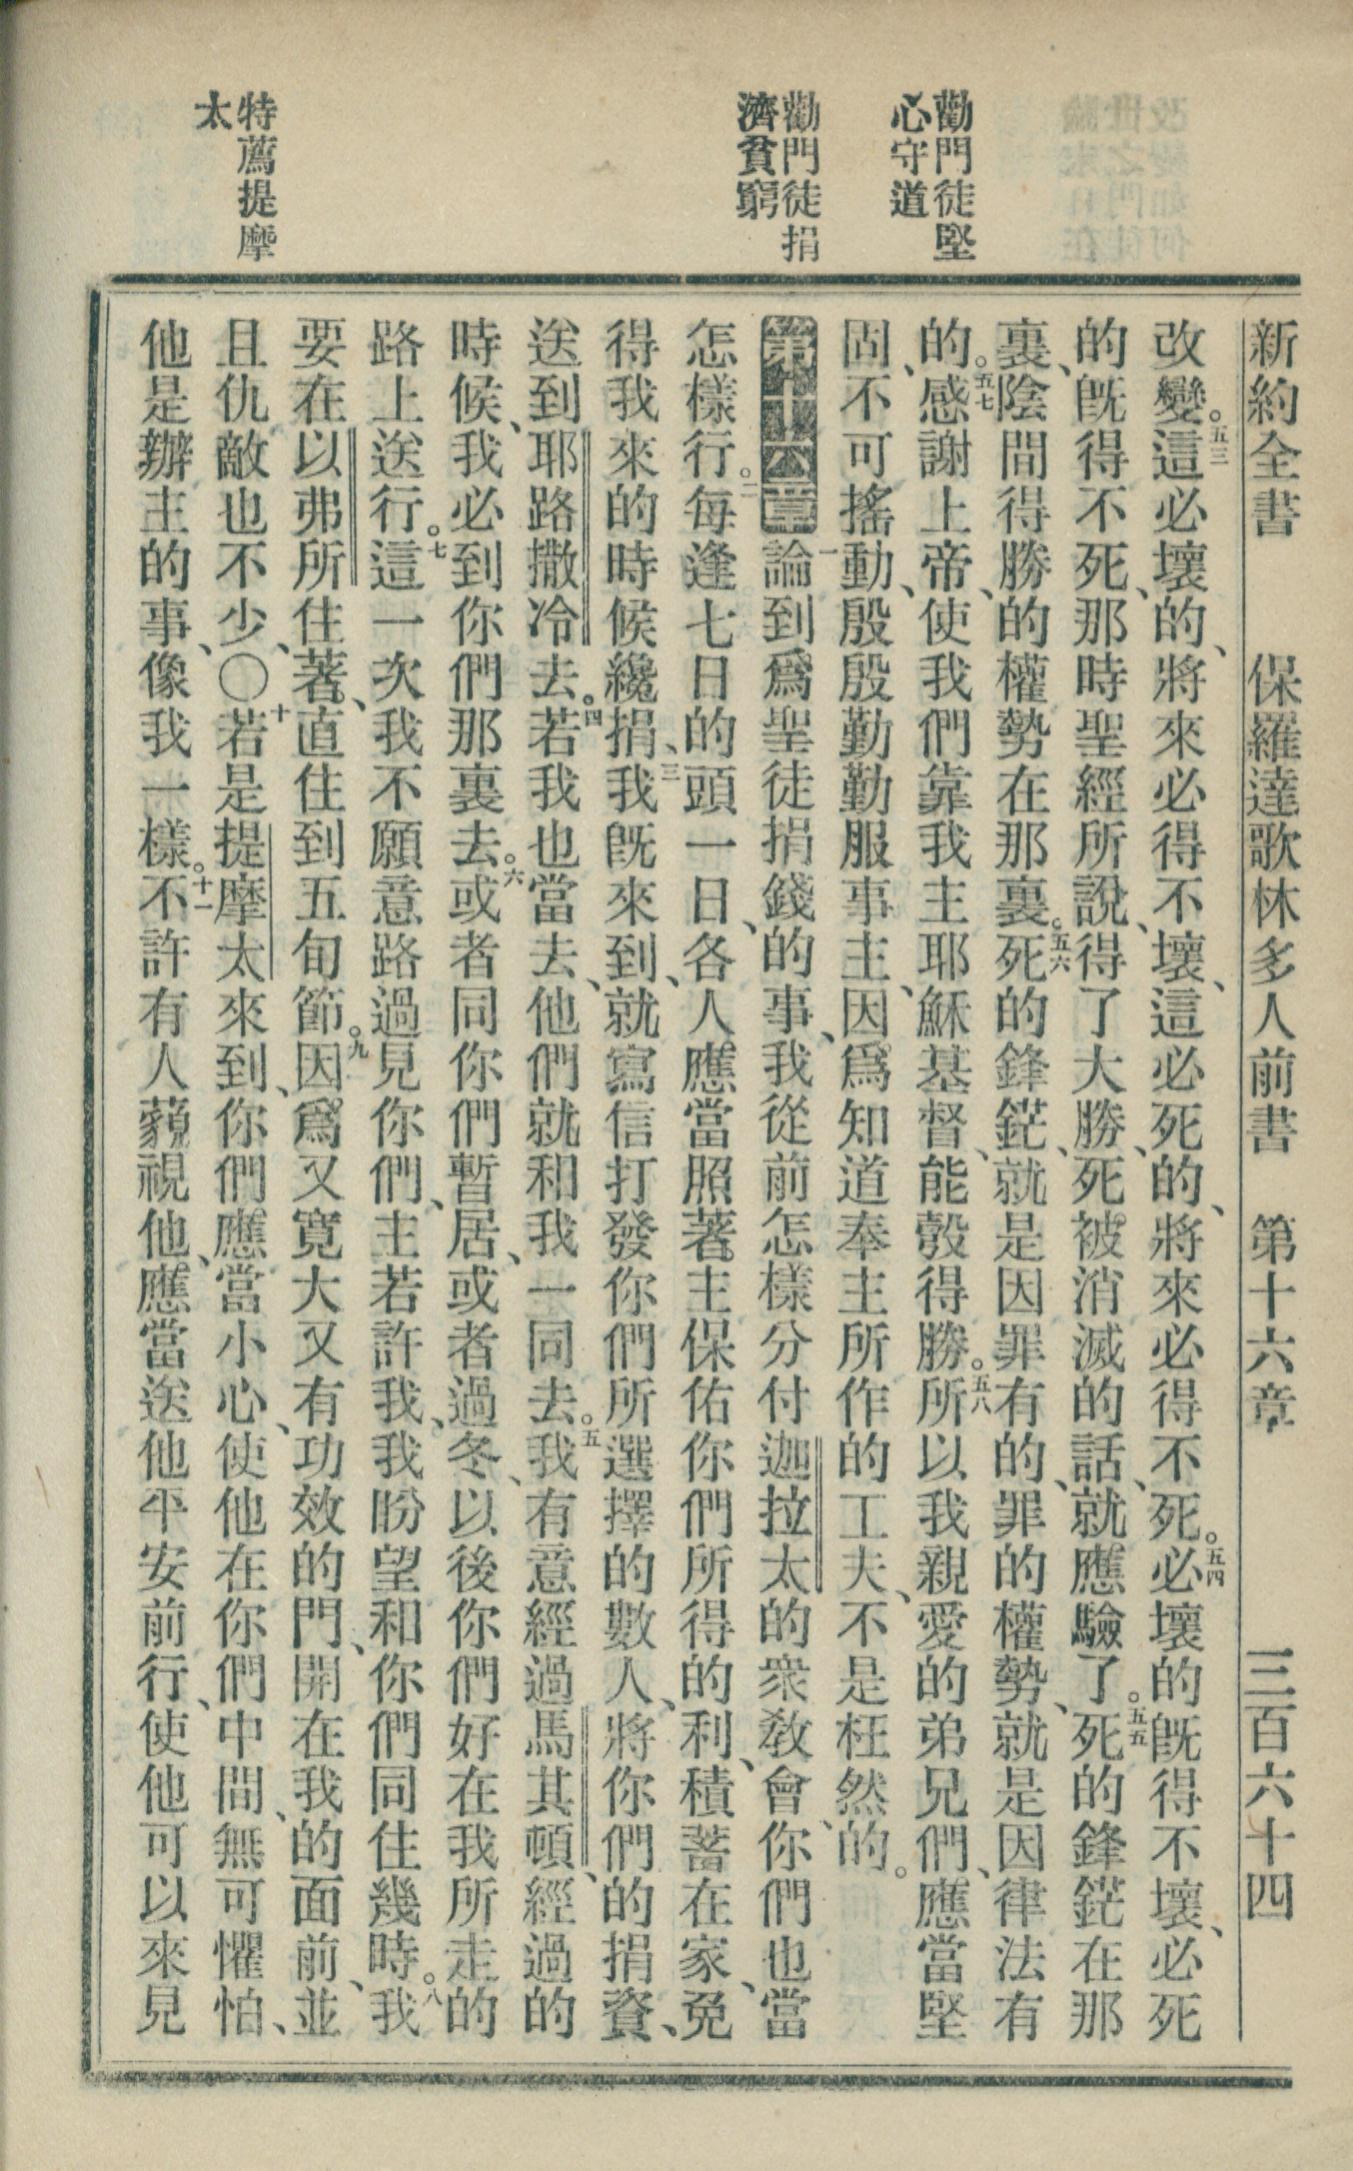 新約全書　保羅達歌林多人前書　第十六章　三百六十四
勸門徒堅
心守道
勸門徒捐
濟貧窮
特薦提摩
太
改變。五三這必壞的、將來必得不壞、這必死的、將來必得不死。五四必壞的旣得不壞、必死
的旣得不死、那時聖經所說、得了大勝、死被消滅的話、就應驗了。五五死的鋒鋩在那
裏、陰間得勝的權勢在那裏。五六死的鋒鋩、就是因罪有的、罪的權勢、就是因律法有
的。五七感謝上帝、使我們靠我主耶穌基督、能彀得勝。五八所以我親愛的弟兄們、應當堅
固、不可搖動、殷殷勤勤服事主、因爲知道奉主所作的工夫、不是枉然的。
第十六章一論到爲聖徒捐錢的事、我從前怎樣分付迦拉太的衆敎會、你們也當
怎樣行。二每逢七日的頭一日、各人應當照著主保佑你們所得的利、積蓄在家、免
得我來的時候纔捐、三我旣來到、就寫信打發你們所選擇的數人、將你們的捐資、
送到耶路撒冷去。四若我也當去、他們就和我一同去。五我有意經過馬其頓、經過的
時候、我必到你們那裏去。六或者同你們暫居、或者過冬、以後你們好在我所走的
路上送行。七這一次我不願意路過見你們、主若許我、我盼望和你們同住幾時。八我
要在以弗所住著、直住到五旬節。九因爲又寬大又有功效的門、開在我的面前、並
且仇敵也不少、〇十若是提摩太來到、你們應當小心、使他在你們中間、無可懼怕、
他是辦主的事、像我一樣。十一不許有人藐視他、應當送他平安前行、使他可以來見